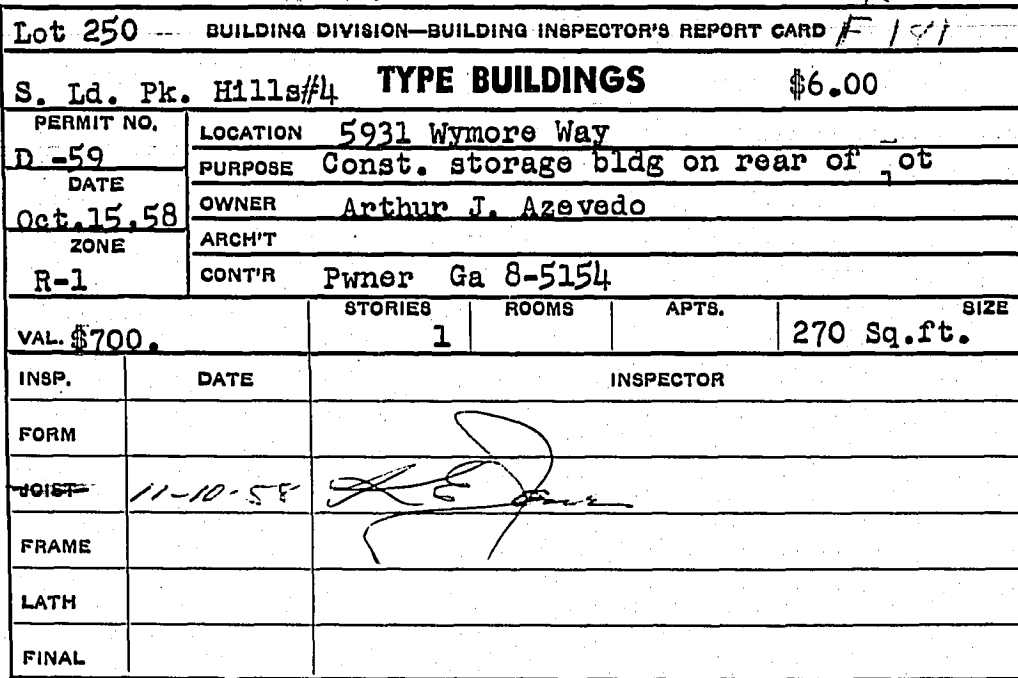 Lot 250 BUILDING DIVISION—BUILDING INSPECTOR'S REPORT CARD
S. Ld. Pk. Hills#4 TYPE BUILDINGS $6.00
PERMIT NO.
D -59
DATE
Oct.15,58
ZONE
R-1
LOCATION 5931 Wymore Way
PURPOSE Const. storage bldg on rear of lot
OWNER Arthur J. Azevedo
ARCH'T
CONT'R Pwner Ga 8-5154
VAL. $700. STORIES 1 ROOMS APTS. SIZE 270 Sq.ft.
INSP. DATE INSPECTOR
FORM
JOIST 11-10-58
FRAME
LATH
FINAL